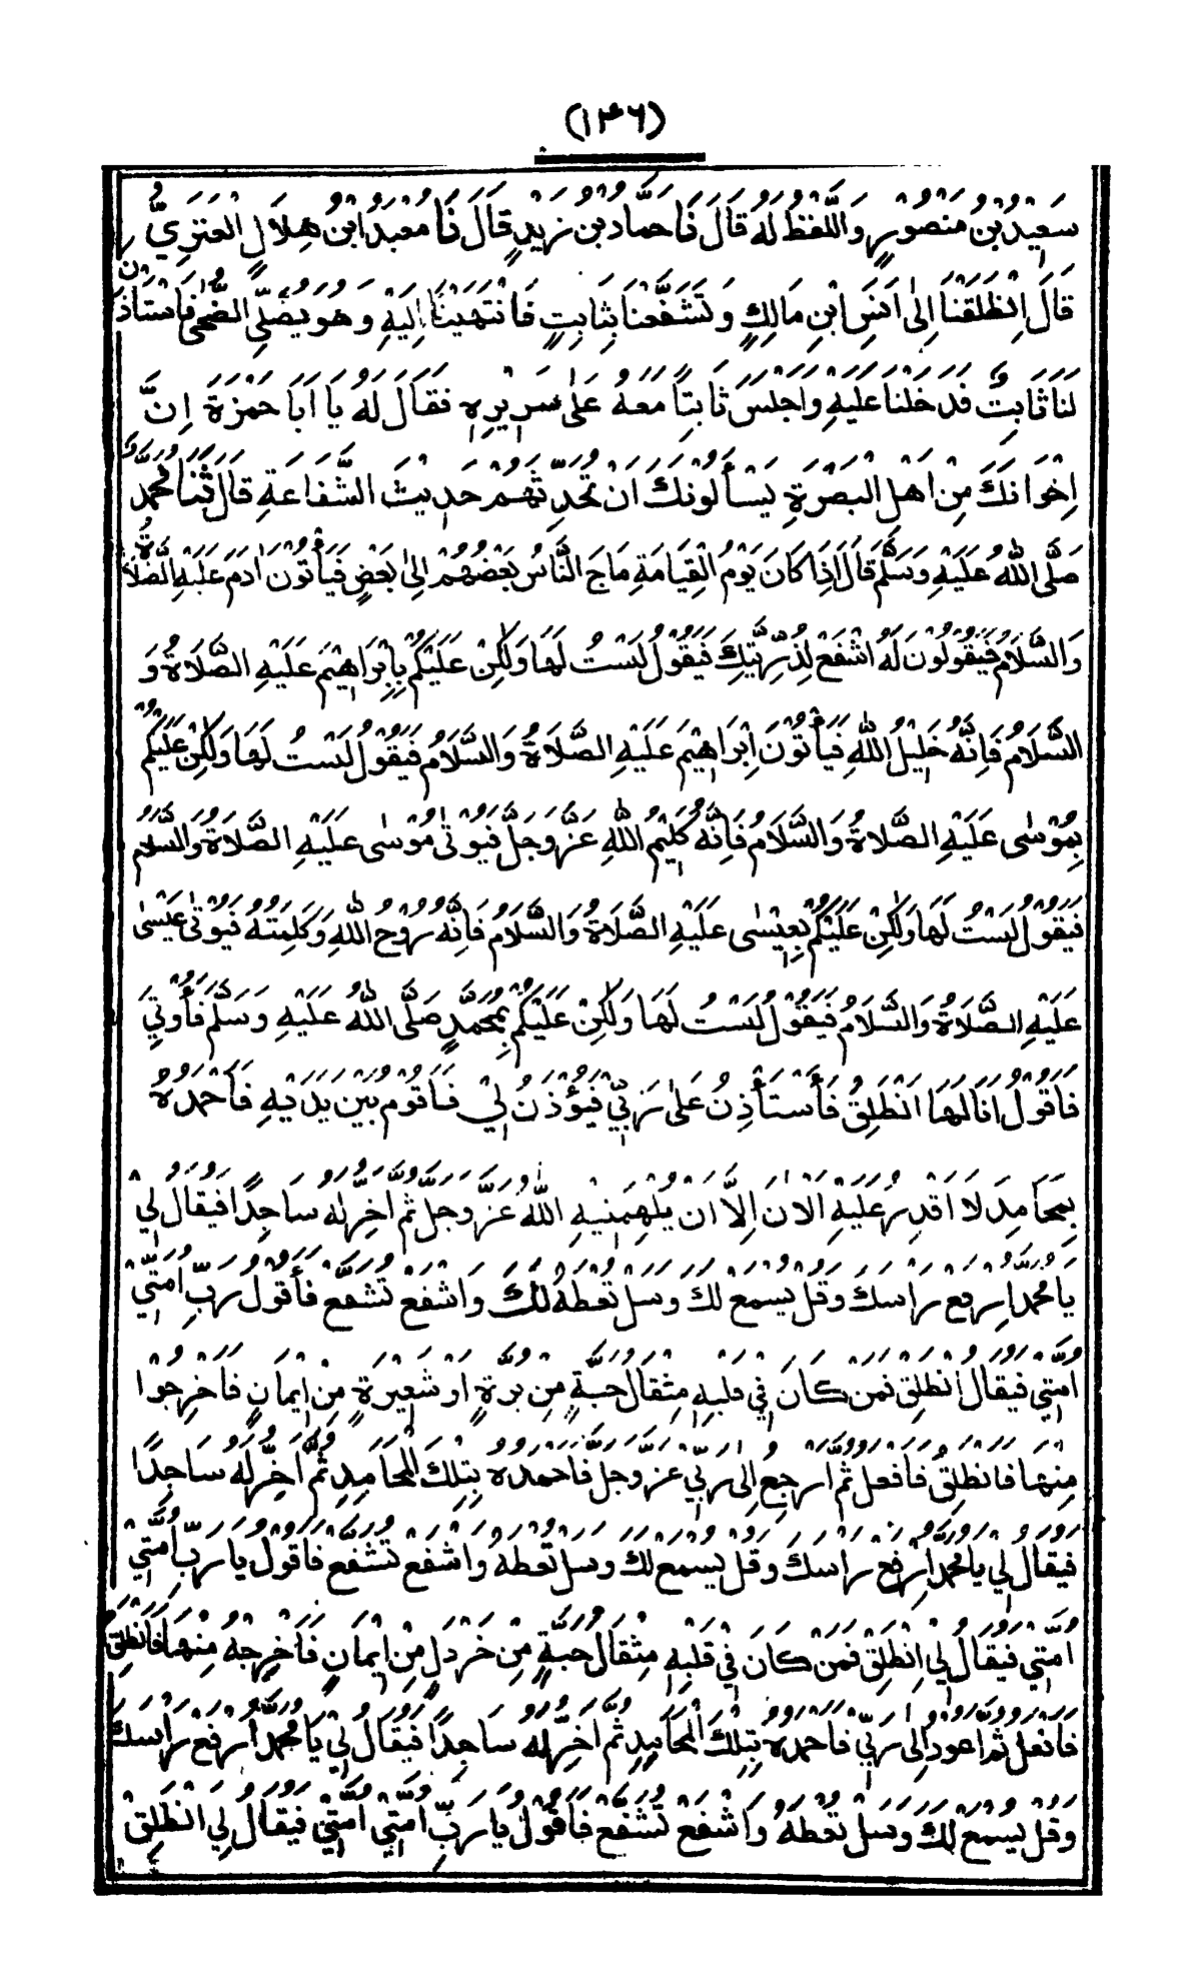 (۱۴۶)
سَعِيْدُ بْنُ مَنْصُوْرٍ وَاللَّفْظُ لَهُ قَالَ نَا حَمَّادُ بْنُ زَيْدٍ قَالَ نَا مَعْبَدُ ابْنُ هِلَالٍ الْعَنَزِيُّ
قَالَ اِنْطَلَقْنَا اِلٰى اَنَسِ ابْنِ مَالِكٍ وَتَشَفَّعْنَا بِثَابِتٍ فَانْتَهَيْنَا اِلَيْهِ وَهُوَ يُصَلِّي الضُّحٰى فَاسْتَاْذَنَ
لَنَا ثَابِتٌ فَدَخَلْنَا عَلَيْهِ وَاَجْلَسَ ثَابِتًا مَعَهُ عَلٰى سَرِيْرِهٖ فَقَالَ لَهُ يَا اَبَا حَمْزَةَ اِنَّ
اِخْوَانَكَ مِنْ اَهْلِ الْبَصْرَةِ يَسْأَلُوْنَكَ اَنْ تُحَدِّثَهُمْ حَدِيْثَ الشَّفَاعَةِ قَالَ ثَنَا مُحَمَّدٌ
صَلَّى اللّٰهُ عَلَيْهِ وَسَلَّمَ قَالَ اِذَا كَانَ يَوْمُ الْقِيَامَةِ مَاجَ النَّاسُ بَعْضُهُمْ اِلٰى بَعْضٍ فَيَأْتُوْنَ اٰدَمَ عَلَيْهِ الصَّلَاةُ
وَالسَّلَامُ فَيَقُوْلُوْنَ لَهُ اشْفَعْ لِذُرِّيَّتِكَ فَيَقُوْلُ لَسْتُ لَهَا وَلٰكِنْ عَلَيْكُمْ بِاِبْرَاهِيْمَ عَلَيْهِ الصَّلَاةُ وَ
السَّلَامُ فَاِنَّهُ خَلِيْلُ اللّٰهِ فَيَأْتُوْنَ اِبْرَاهِيْمَ عَلَيْهِ الصَّلَاةُ وَالسَّلَامُ فَيَقُوْلُ لَسْتُ لَهَا وَلٰكِنْ عَلَيْكُمْ
بِمُوْسٰى عَلَيْهِ الصَّلَاةُ وَالسَّلَامُ فَاِنَّهُ كَلِيْمُ اللّٰهِ عَزَّ وَجَلَّ فَيُوْتٰى مُوْسٰى عَلَيْهِ الصَّلَاةُ وَالسَّلَامُ
فَيَقُوْلُ لَسْتُ لَهَا وَلٰكِنْ عَلَيْكُمْ بِعِيْسٰى عَلَيْهِ الصَّلَاةُ وَالسَّلَامُ فَاِنَّهُ رُوْحُ اللّٰهِ وَكَلِمَتُهُ فَيُوْتٰى عِيْسٰى
عَلَيْهِ الصَّلَاةُ وَالسَّلَامُ فَيَقُوْلُ لَسْتُ لَهَا وَلٰكِنْ عَلَيْكُمْ بِمُحَمَّدٍ صَلَّى اللّٰهُ عَلَيْهِ وَسَلَّمَ فَأُوْتٰى
فَاَقُوْلُ اَنَا لَهَا اَنْطَلِقُ فَأَسْتَأْذِنُ عَلٰى رَبِّيْ فَيُؤْذَنُ لِيْ فَاَقُوْمُ بَيْنَ يَدَيْهِ فَاَحْمَدُهُ
بِمَحَامِدَ لَا اَقْدِرُ عَلَيْهِ الْاٰنَ اِلَّا اَنْ يُلْهِمَنِيْهِ اللّٰهُ عَزَّ وَجَلَّ ثُمَّ اَخِرُّ لَهُ سَاجِدًا فَيُقَالُ لِيْ
يَا مُحَمَّدُ اِرْفَعْ رَاْسَكَ وَقُلْ يُسْمَعْ لَكَ وَسَلْ تُعْطَهُ لَكَ وَاشْفَعْ تُشَفَّعْ فَأَقُوْلُ رَبِّ اُمَّتِيْ
اُمَّتِيْ فَيُقَالُ اِنْطَلِقْ فَمَنْ كَانَ فِيْ قَلْبِهٖ مِثْقَالُ حَبَّةٍ مِنْ بُرَّةٍ اَوْ شَعِيْرَةٍ مِنْ اِيْمَانٍ فَاَخْرِجُوْا
مِنْهَا فَانْطَلِقُ فَاَفْعَلُ ثُمَّ اَرْجِعُ اِلٰى رَبِّيْ عَزَّ وَجَلَّ فَاَحْمَدُهُ بِتِلْكَ الْمَحَامِدِ ثُمَّ اَخِرُّ لَهُ سَاجِدًا
فَيُقَالُ لِيْ يَا مُحَمَّدُ اِرْفَعْ رَاْسَكَ وَقُلْ يُسْمَعْ لَكَ وَسَلْ تُعْطَهُ وَاشْفَعْ تُشَفَّعْ فَاَقُوْلُ يَا رَبِّ اُمَّتِيْ
اُمَّتِيْ فَيُقَالُ لِيْ اِنْطَلِقْ فَمَنْ كَانَ فِيْ قَلْبِهٖ مِثْقَالُ حَبَّةٍ مِنْ خَرْدَلٍ مِنْ اِيْمَانٍ فَاَخْرِجْهُ مِنْهَا فَانْطَلِقُ
فَاَفْعَلُ ثُمَّ اَعُوْدُ اِلٰى رَبِّيْ فَاَحْمَدُهُ بِتِلْكَ الْمَحَامِدِ ثُمَّ اَخِرُّ لَهُ سَاجِدًا فَيُقَالُ لِيْ يَا مُحَمَّدُ ارْفَعْ رَاْسَكَ
وَقُلْ يُسْمَعْ لَكَ وَسَلْ تُعْطَهُ وَاشْفَعْ تُشَفَّعْ فَاَقُوْلُ يَا رَبِّ اُمَّتِيْ اُمَّتِيْ فَيُقَالُ لِيَ انْطَلِقْ